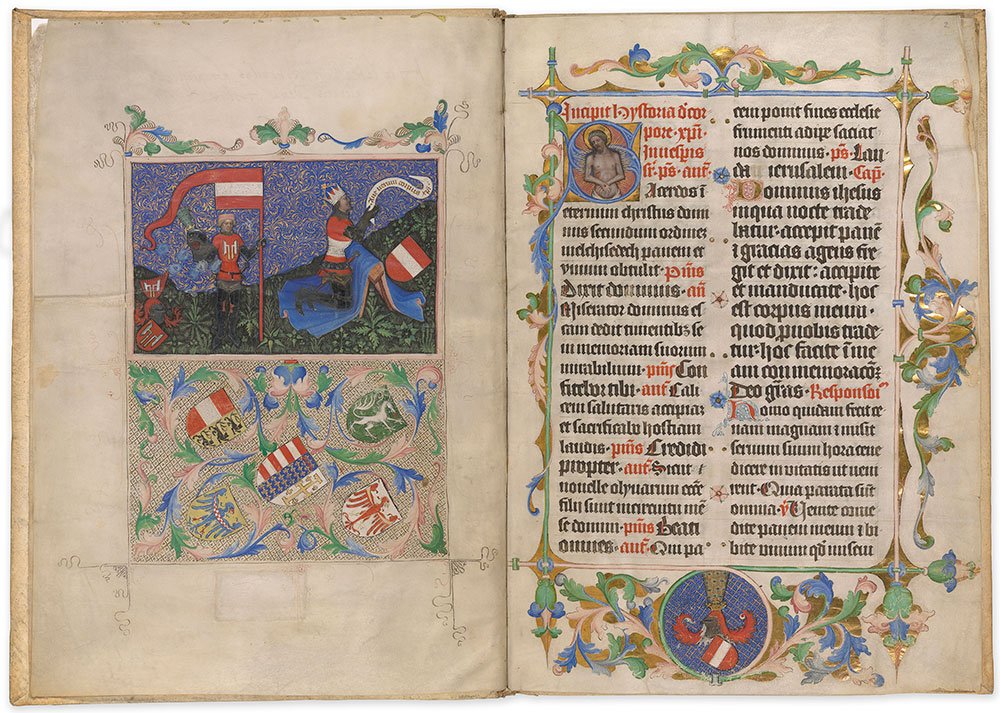 2
Incipit hystoria de cor
pore xpi
In vesperis
ps ant
acerdos i
eternum christus domi
nus secundum ordinez
melchisedech panem et
vinum obtulit · pmus
Dixit dominus · an
Miserator dominus es
cam dedit timentibz se
in memoriam suorum
mirabilium · pmus Con
fitebor tibi · ant Cali
cem salutaris accipiaz
et sacrificabo hostiam
laudis · pmus Credidi
propter · ant Sicut
nouelle olyuarum ecce
filij sunt
se domini · pmus Beati
omnes · ant Qui pa
cem ponit fines ecclesie
frumenti adipe saciat
nos dominus · ps Lau
da ierusalem · Cap
Dominus ihesus
in qua nocte trade
batur · accepit panem
i gracias agens fre
git et dixit : accipite
et manducate · hoc
est corpus meum
quod pro uobis trade
tur · hoc facite i me
am commemoracoem
Deo gras · Responsoium
Homo quidam fecit ce
nam magnam i misit
seruum suum hora cene
dicere inuitatis ut ueni
rent · Quia parata sut
omnia · v Venite come
dite panem meum i bi
bite vinum qd miscui